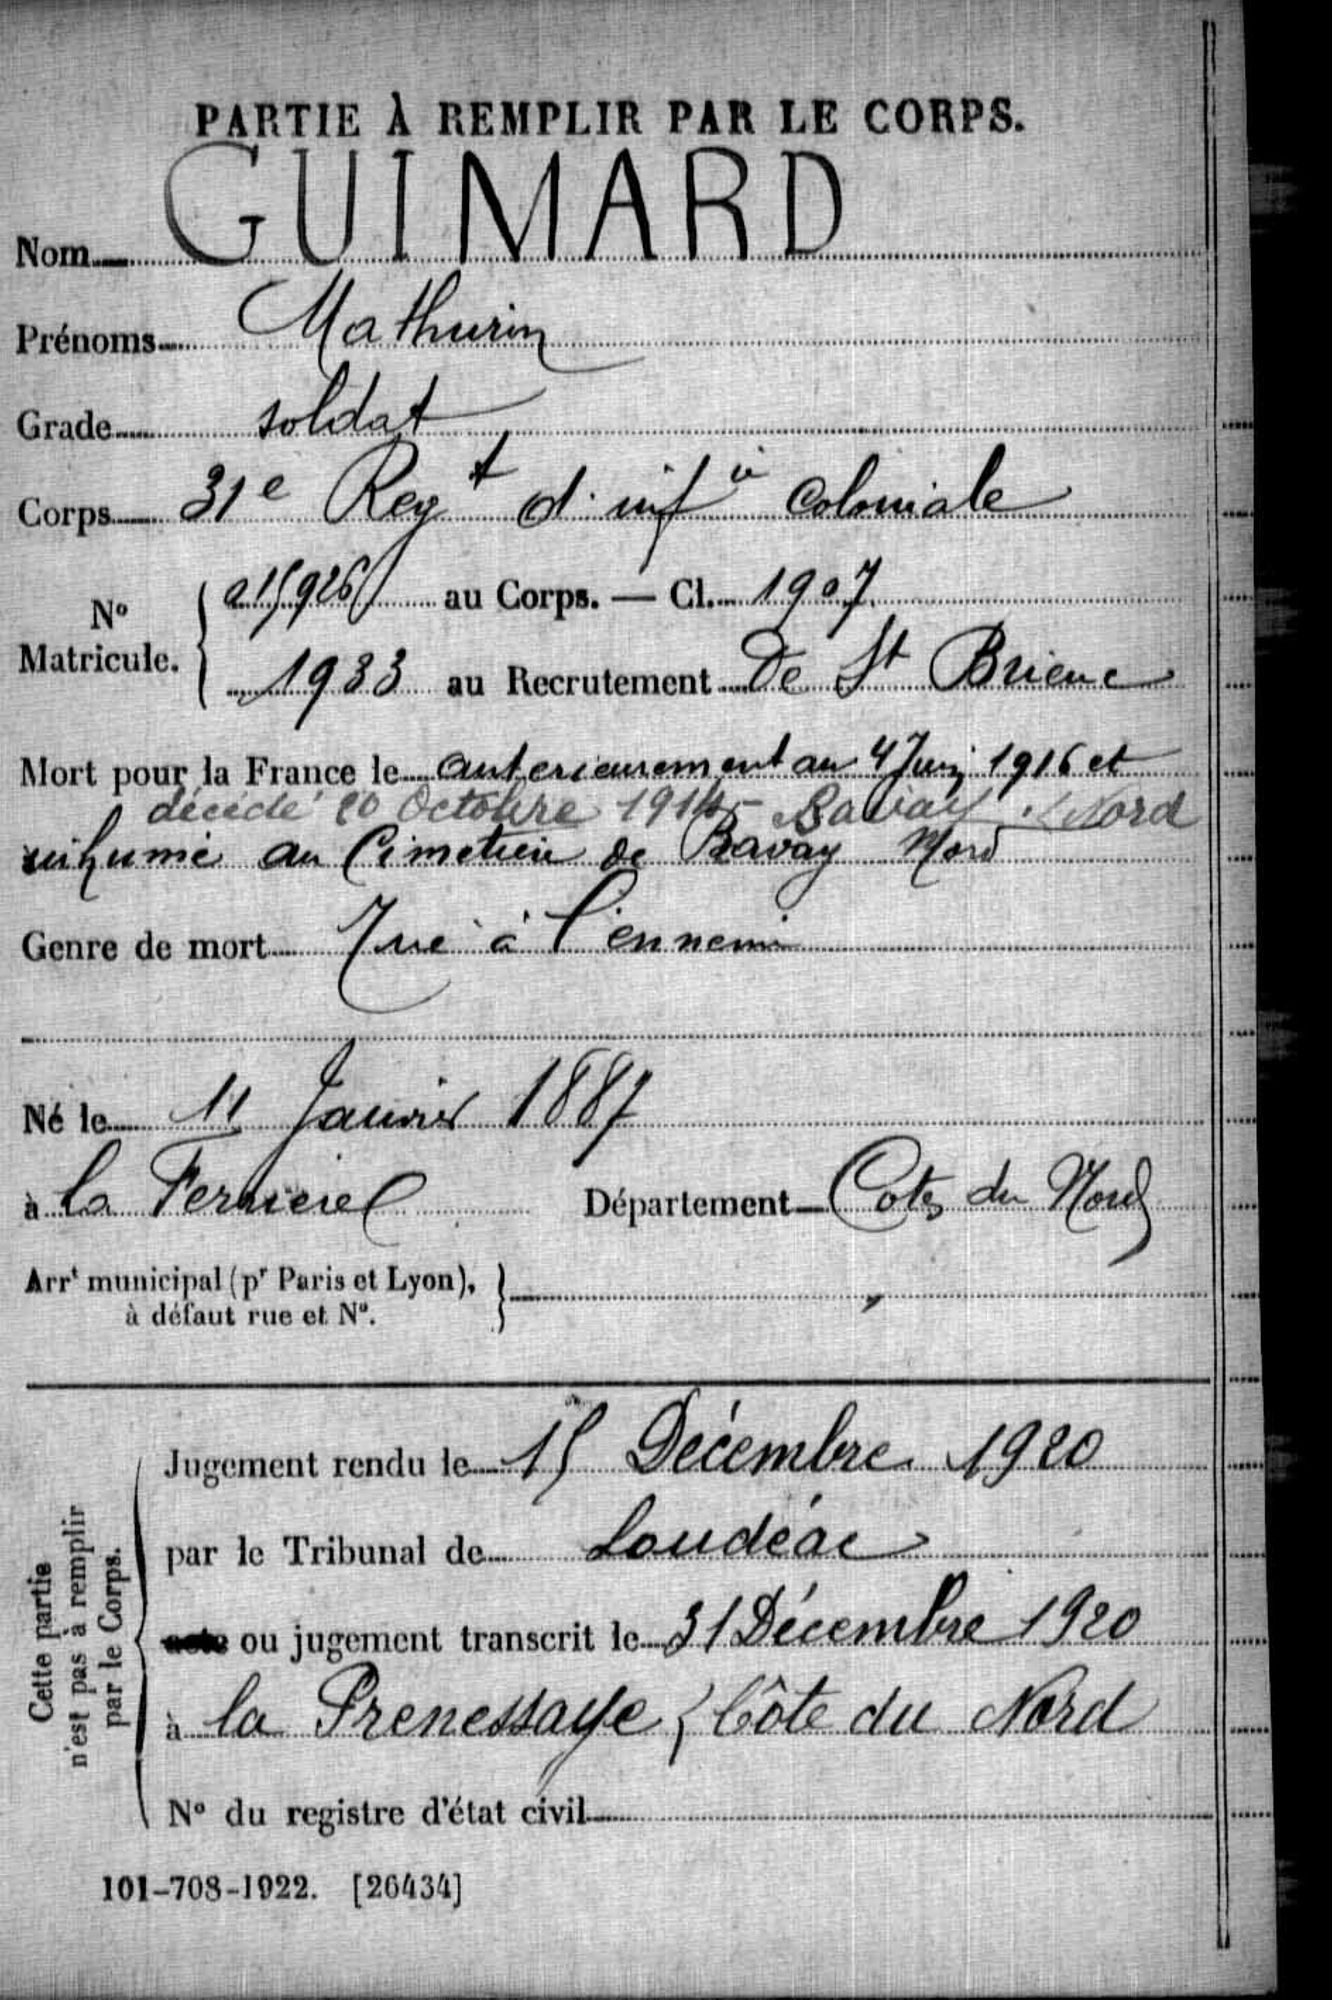 PARTIE À REMPLIR PAR LE CORPS.
Nom GUIMARD
Prénoms Mathurin
Grade soldat
Corps 31e Regt d'infie Coloniale
No Matricule. 015926 au Corps. — Cl. 1907
1933 au Recrutement De St Brieuc
Mort pour la France le anterieurement au 4 Juin 1916 et
décédé 10 Octobre 1914 - Bavay (Nord
inhumé au Cimetière de Bavay Nord
Genre de mort Tué à l'ennemi
Né le 11 Janvier 1887
à la Ferrière Département Cotes du Nord
Arrt municipal (pr Paris et Lyon),
à défaut rue et No.
Cette partie n'est pas à remplir par le Corps.
Jugement rendu le 15 Décembre 1920
par le Tribunal de Loudéac
acte ou jugement transcrit le 31 Décembre 1920
à la Prenessaye (Côte du Nord
No du registre d'état civil
101-708-1922. [26434]